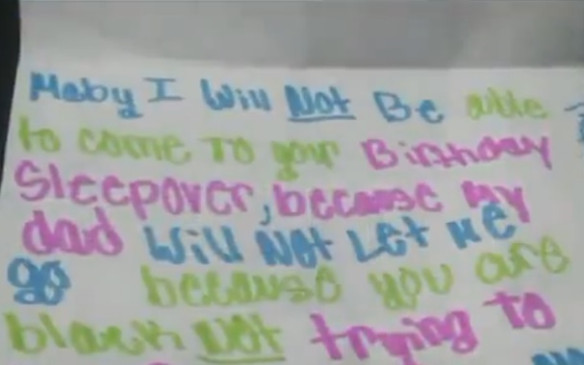 Maby I Will Not Be able
to come To your Birthday
Sleepover, because my
dad Will Not Let Me
go because you are
black Not trying to